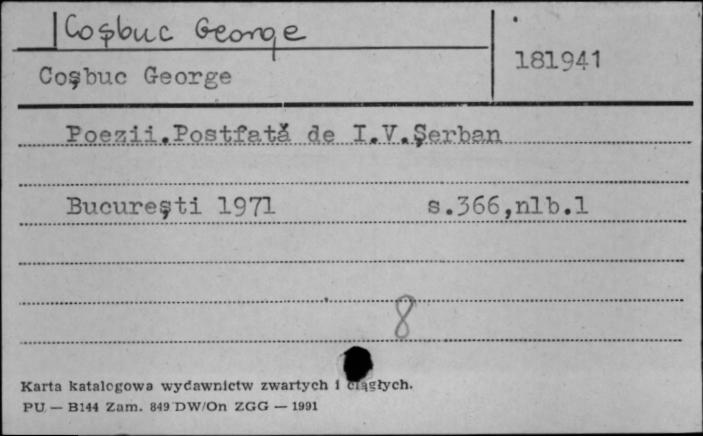 Coșbuc George
Coşbuc George
181941
Poezii.Postfată de I.V.Şerban
Bucureşti 1971 s.366,nlb.1
8
Karta katalogowa wydawnictw zwartych i ciągłych.
PU — B144 Zam. 849 DW/On ZGG — 1991